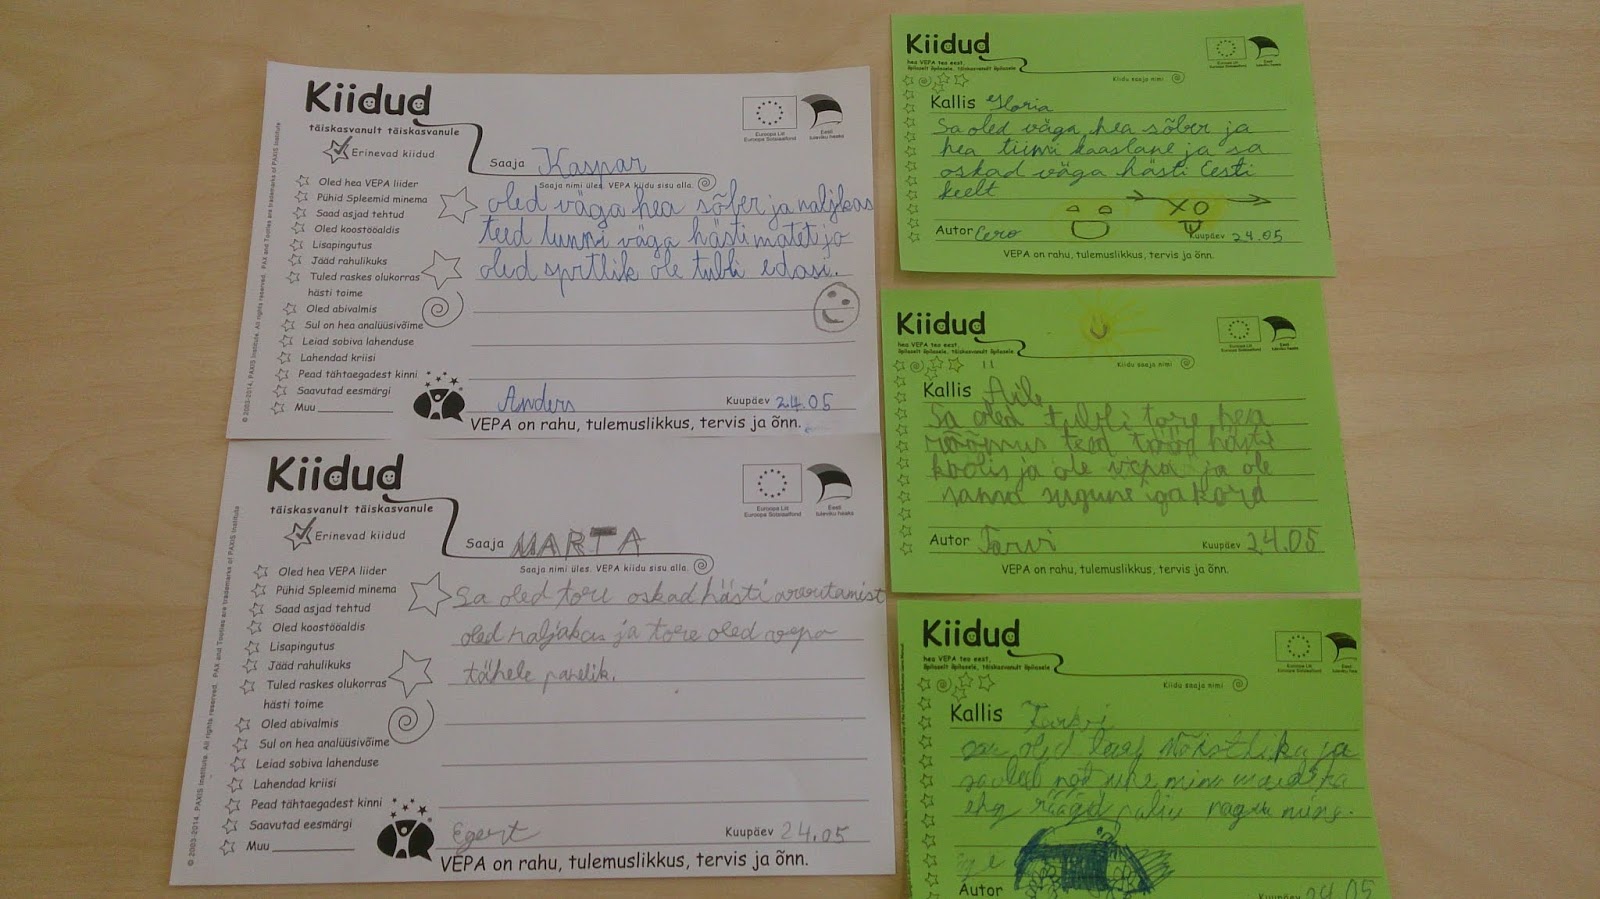 Kiidud
täiskasvanult täiskasvanule
Erinevad kiidud
Euroopa Liit
Euroopa Sotsiaalfond
Eesti
tuleviku heaks
Saaja Kaspar
Saaja nimi üles, VEPA kiidu sisu alla.
Oled hea VEPA liider
Pühid Spleemid minema
Saad asjad tehtud
Oled koostööaldis
Lisapingutus
Jääd rahulikuks
Tuled raskes olukorras
hästi toime
Oled abivalmis
Sul on hea analüüsivõime
Leiad sobiva lahenduse
Lahendad kriisi
Pead tähtaegadest kinni
Saavutad eesmärgi
Muu
oled väga hea sõber ja naljkas
teed tunni väga hästi matet ja
oled sprtlik ole tubli edasi.
Anders
Kuupäev 24.05
VEPA on rahu, tulemuslikkus, tervis ja õnn.
© 2003-2014, PAXIS Institute. All rights reserved. PAX and Tootles are trademarks of PAXIS Institute
Kiidud
täiskasvanult täiskasvanule
Erinevad kiidud
Euroopa Liit
Euroopa Sotsiaalfond
Eesti
tuleviku heaks
Saaja MARTA
Saaja nimi üles, VEPA kiidu sisu alla.
Oled hea VEPA liider
Pühid Spleemid minema
Saad asjad tehtud
Oled koostööaldis
Lisapingutus
Jääd rahulikuks
Tuled raskes olukorras
hästi toime
Oled abivalmis
Sul on hea analüüsivõime
Leiad sobiva lahenduse
Lahendad kriisi
Pead tähtaegadest kinni
Saavutad eesmärgi
Muu
Sa oled tore oskad hästi
oled naljakas ja tore oled vepa
tähele panelik.
Egert
Kuupäev 24.05
VEPA on rahu, tulemuslikkus, tervis ja õnn.
© 2003-2014, PAXIS Institute. All rights reserved. PAX and Tootles are trademarks of PAXIS Institute
Kiidud
hea VEPA teo eest,
õpilaselt õpilasele, täiskasvanult õpilasele
Euroopa Liit
Euroopa Sotsiaalfond
Eesti
tuleviku heaks
Kiidu saaja nimi
Kallis Gloria
Sa oled väga hea sõber ja
hea tiimi kaaslane ja sa
oskad väga hästi Eesti
keelt
Autor Eero
Kuupäev 24.05
VEPA on rahu, tulemuslikkus, tervis ja õnn.
Kiidud
hea VEPA teo eest,
õpilaselt õpilasele, täiskasvanult õpilasele
Euroopa Liit
Euroopa Sotsiaalfond
Eesti
tuleviku heaks
Kiidu saaja nimi
Kallis Aile
Sa oled tubli tore hea
rõõmus teed tööd hästi
koolis ja ole vepa ja ole
sama sugune ga kord
Autor Tarvi
Kuupäev 24.05
VEPA on rahu, tulemuslikkus, tervis ja õnn.
Kiidud
hea VEPA teo eest,
õpilaselt õpilasele, täiskasvanult õpilasele
Euroopa Liit
Euroopa Sotsiaalfond
Eesti
tuleviku heaks
Kiidu saaja nimi
Kallis
sa oled ja
sa oled
räägid palju nagu mina.
Autor
Kuupäev 24.05